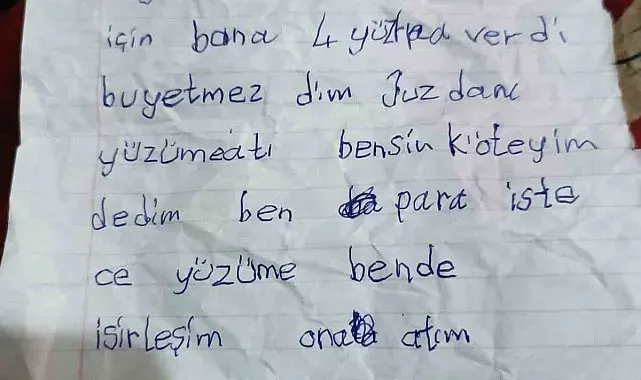 için bana 4 yüzlira verdi
buyetmez dim Juzdanı
yüzümeatı bensin köteyim
dedim ben para iste
ce yüzüme bende
isirleşim ona atım